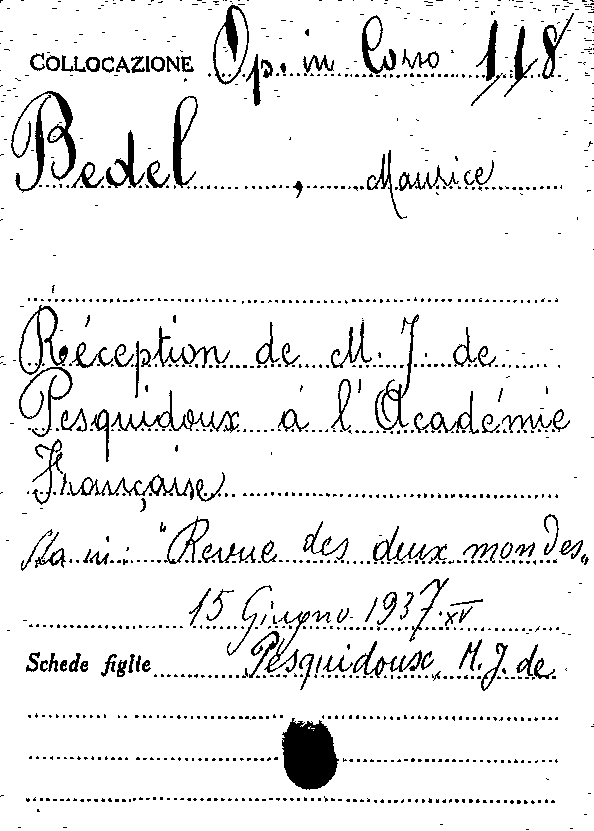 COLLOCAZIONE Op. in Corso 118
Bedel, Maurice
Réception de M. J. de
Pesquidoux à l'Académie
Française
Sta in: "Revue des deux mondes„
15 Giugno 1937.XV
Schede figlie Pesquidoux, M. J. de